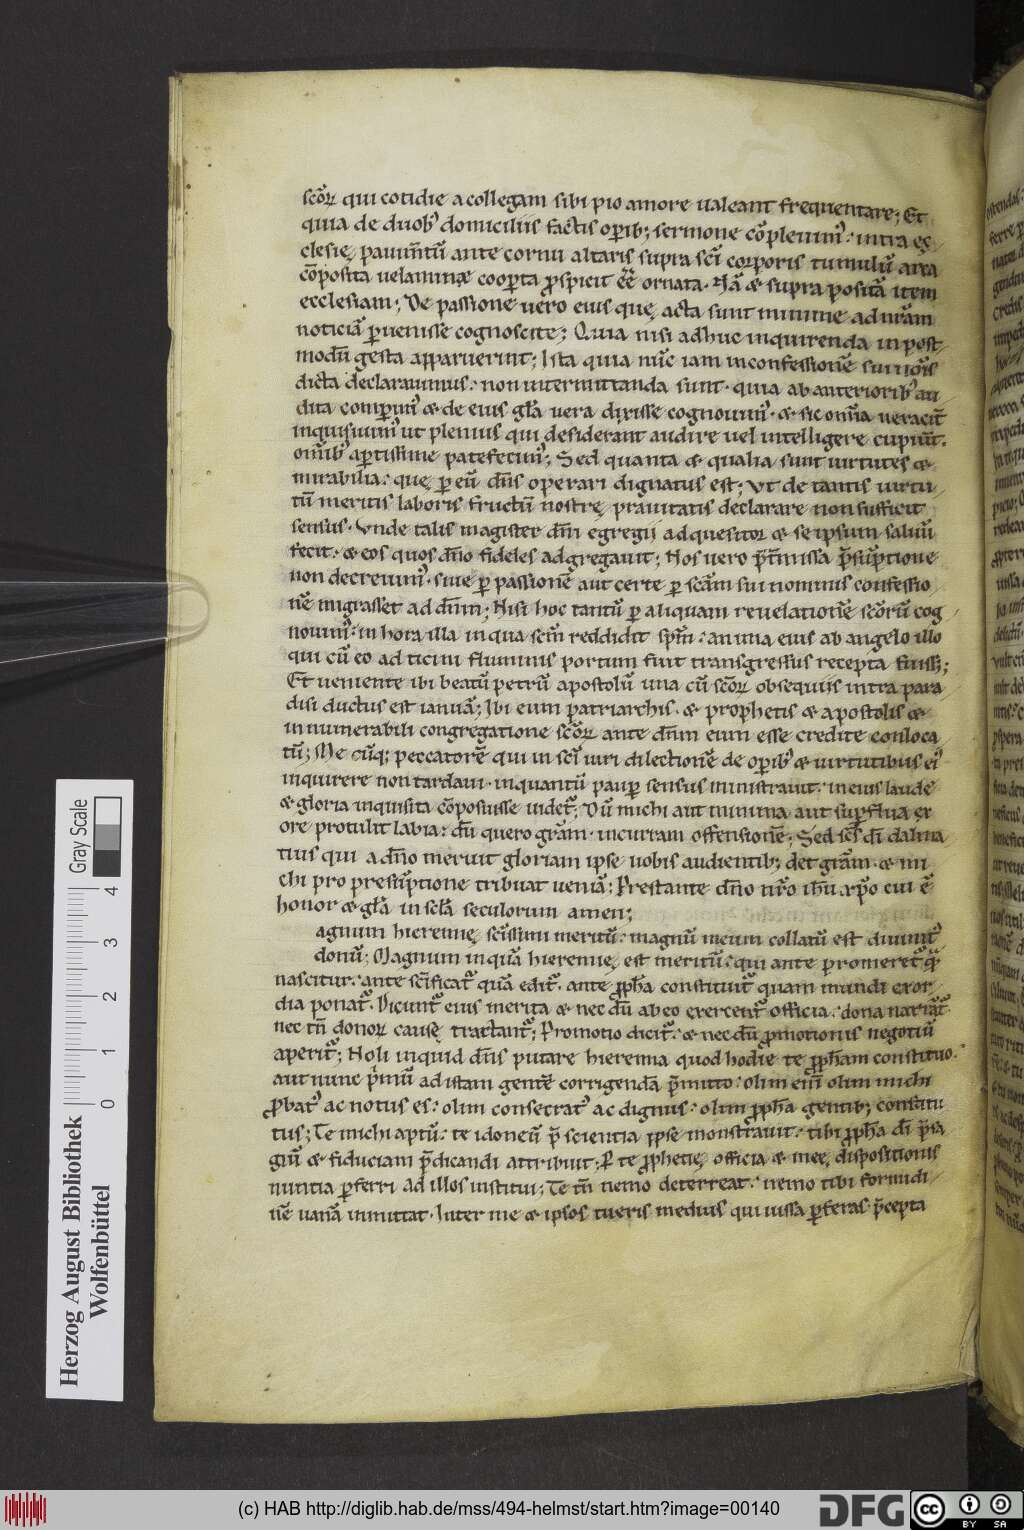 scōꝝ qui cotidie a collegam sibi pio amore ualeant frequentare; Et
quia de duobꝰ domiciliis factis oꝑib; sermone cōpleuimꝰ. intra ec
clesie pauim̄tū ante cornu altaris supra sc̄i corporis tumulū arca
cōposita uelamina cooꝑta ꝓspicit eē ornata. Nā & supra positā item
ecclesiam; De passione uero eius que acta sunt minime ad nr̄am
noticiā ꝑuenisse cognoscite; Quia nisi adhuc inquirenda in post
modū gesta apparuerint; Ista quia nūc iam in confessionē sui noīs
dicta declarauimus. non intermittanda sunt. quia ab anterioribꝰ au
dita comꝑimꝰ & de eius gl̄a uera dixisse cognouimꝰ. & sic om̄ia ueracit̄
inquisiuimꝰ ut plenius qui desiderant audire uel intelligere cupiūt.
om̄ibꝰ aꝑtissime patefecimꝰ; Sed quanta & qualia sunt uirtutes &
mirabilia. que ꝑ eū dn̄s operari dignatus est; Vt de tantis uirtu
tū meritis laboris fructū nostre prauitatis declarare non sufficit
sensus. Vnde talis magister dn̄i egregii adquesitor & se ipsum saluū
fecit. & eos quos dn̄o fideles adgregauit; Nos uero p̄t̄missa p̄sūptione
non decreuimꝰ. siue ꝑ passionē aut certe ꝑ sc̄am sui nominis confessio
nē migrasset ad dn̄m; Nisi hoc tantū ꝑ aliquam reuelationē scōrū cog
nouimꝰ. in hora illa in qua sc̄m reddidit sp̄m. anima eius ab angelo illo
qui cū eo ad ticini fluminis portum fuit transgressus recepta fuiss;
Et ueniente ibi beatū petrū apostolū una cū scōꝝ obsequiis intra para
disi ductus est ianuā; Ibi eum patriarchis. & prophetis & apostolis &
innumerabili congregatione scōꝝ ante dn̄m eum esse credite conloca
tū; Me cūq; peccatorē qui in sc̄i uiri dilectionē de oꝑibꝰ & uirtutibus eiꝰ
inquirere non tardaui. inquantū pauꝑ sensus ministrauit. in eius laude
& gloria inquisita cōposuisse uidet᷑; Dū michi aut minima aut suꝑflua ex
ore protulit labia. dū quero gr̄am. incurram offensionē; Sed sc̄s dī dalma
tius qui a dn̄o meruit gloriam ipse uobis audientib; det gr̄am. & mi
chi pro presūptione tribuat ueniā; Prestante dn̄o nr̄o ih̄u xp̄o cui ē
honor & gl̄a in sc̄la seculorum amen;
agnum hieremie sc̄issimi meritū. magnū meum collatū est diuinitꝰ
donū; Magnum inquā hieremie est meritū. qui ante promeret᷑ q̄
nascitur. ante sc̄ificat᷑ quā edit᷑. ante ꝓph̄a constituit᷑ quam mundi exor
dia ponat᷑. Dicunt᷑ eius merita & nec dū ab eo exercent᷑ officia. dona narrat᷑
nec tn̄ donoꝝ cause tractant᷑; Promotio dicit᷑. & nec dū ꝓmotionis negotiū
aperit᷑; Noli inquid dn̄s putare hieremia quod hodie te ꝓph̄am constituo.
aut nunc p̄mū ad istam gentē corrigendā p̄mitto. olim enī olim michi
ꝓbatꝰ ac notus es. olim consecratꝰ ac dignus. olim ꝓph̄a gentib; constitu
tus; Te michi aptū. te idoneū p̄scientia ipse monstrauit. tibi ꝓph̄a dī p̄sa
giū & fiduciam p̄dicandi attribuit; P te ꝓphetie officia & mee dispositionis
nuntia ꝑferri ad illos institui; Te tn̄ nemo deterreat. nemo tibi formidi
nē uanā inmittat. Inter me & ipsos tueris medius qui iussa ꝑferas p̄cepta
Herzog August Bibliothek
Wolfenbüttel
0 1 2 3 4
Gray Scale
(c) HAB http://diglib.hab.de/mss/494-helmst/start.htm?image=00140
DFG
cc BY SA